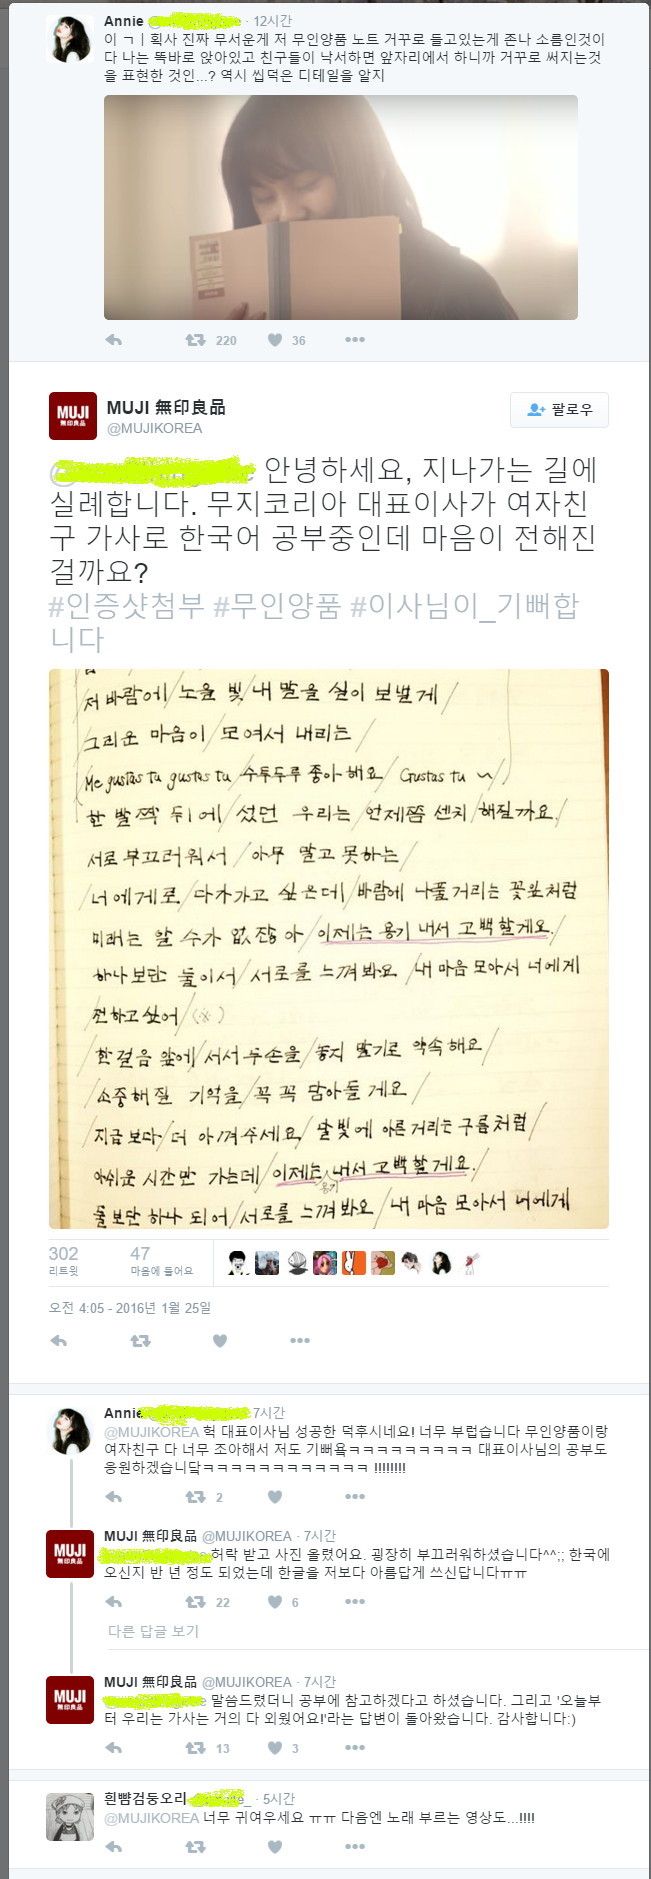 Annie · 12시간
이 ㄱㅣ획사 진짜 무서운게 저 무인양품 노트 거꾸로 들고있는게 존나 소름인것이
다 나는 똑바로 앉아있고 친구들이 낙서하면 앞자리에서 하니까 거꾸로 써지는것
을 표현한 것인...? 역시 씹덕은 디테일을 알지
220 36
MUJI
無印良品
MUJI 無印良品
@MUJIKOREA
팔로우
안녕하세요, 지나가는 길에
실례합니다. 무지코리아 대표이사가 여자친
구 가사로 한국어 공부중인데 마음이 전해진
걸까요?
#인증샷첨부 #무인양품 #이사님이_기뻐합
니다
저 바람에/ 노을 빛/ 내 맘을 실어 보낼게/
그리운 마음이/ 모여서 내리는/
Me gustas tu gustas tu/ 수투두루 좋아해요/ Gustas tu ~/
한 발짝 뒤에/ 섰던 우리는/ 언제쯤 센치/ 해질까요/
서로 부끄러워서/ 아무 말고 못하는/
너에게로/ 다가가고 싶은데/ 바람에 나풀거리는 꽃잎처럼
미래는 알 수가 없잖아/ 이제는 용기 내서 고백할게요/
하나보단 둘이서/ 서로를 느껴봐요/ 내 마음 모아서 너에게
전하고 싶어/ (※)
한 걸음 앞에/ 서서 두손을/ 놓지 말기로 약속해요/
소중해질 기억을/ 꼭꼭 담아둘게요/
지금보다/ 더 아껴주세요/ 달빛에 아른거리는 구름처럼/
아쉬운 시간만 가는데/ 이제는 내서 고백할게요/
용기
둘보단 하나 되어/ 서로를 느껴봐요/ 내 마음 모아서 너에게
302 47
리트윗 마음에 들어요
오전 4:05 - 2016년 1월 25일
Annie 7시간
@MUJIKOREA 헉 대표이사님 성공한 덕후시네요! 너무 부럽습니다 무인양품이랑
여자친구 다 너무 조아해서 저도 기뻐욬ㅋㅋㅋㅋㅋㅋㅋㅋㅋ 대표이사님의 공부도
응원하겠습니닼ㅋㅋㅋㅋㅋㅋㅋㅋㅋㅋㅋㅋ !!!!!!!!
2
MUJI
無印良品
MUJI 無印良品 @MUJIKOREA · 7시간
허락 받고 사진 올렸어요. 굉장히 부끄러워하셨습니다^^;; 한국에
오신지 반 년 정도 되었는데 한글을 저보다 아름답게 쓰신답니다ㅠㅠ
22 6
다른 답글 보기
MUJI
無印良品
MUJI 無印良品 @MUJIKOREA · 7시간
말씀드렸더니 공부에 참고하겠다고 하셨습니다. 그리고 '오늘부
터 우리는 가사는 거의 다 외웠어요!'라는 답변이 돌아왔습니다. 감사합니다:)
13 3
흰뺨검둥오리 · 5시간
@MUJIKOREA 너무 귀여우세요 ㅠㅠ 다음엔 노래 부르는 영상도...!!!!